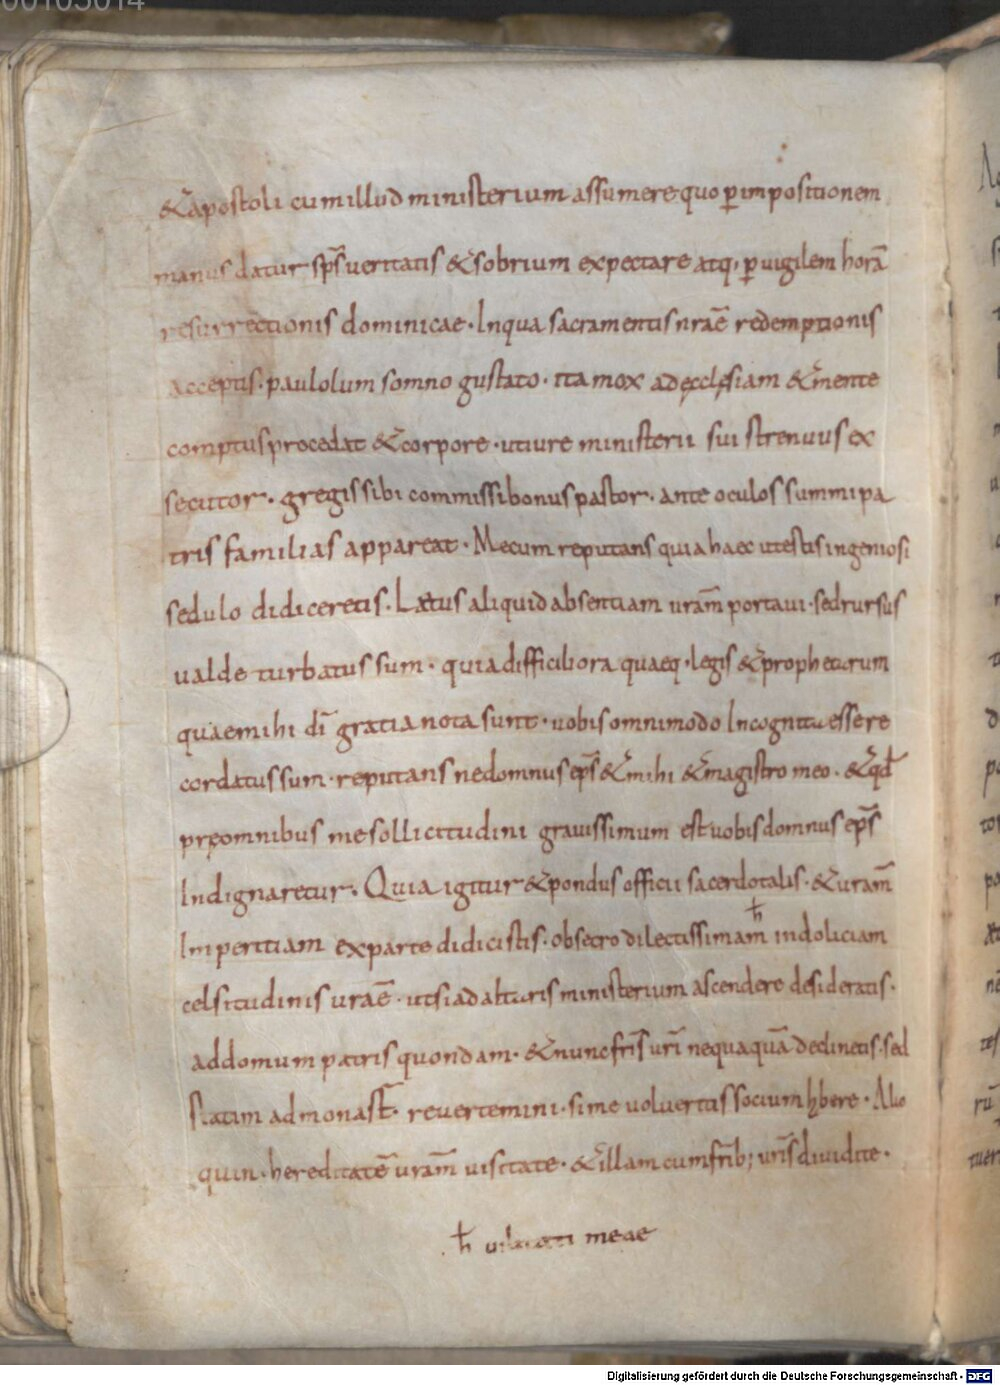 00105014
&apostoli cum illud ministerium assumere quo ꝑ impositionem
manus datur sp̅s ueritatis & sobrium expectare atq, ꝑuigilem horā
resurrectionis dominicae. In qua sacramentis nr̅ae redemptionis
acceptis. paulolum somno gustato. ita mox ad ęcclęsiam & mente
comptus procedat & corpore. ut iure ministerii sui strenuus ex
secutor. gregis sibi commissi bonus pastor. ante oculos summi pa
tris familias appareat. Mecum reputans quia haec ut estis ingeniosi
sedulo didiceretis. Laetus aliquid absentiam uram̅ portaui. sed rursus
ualde turbatus sum. quia difficiliora quaeq. legis & prophetarum
quae mihi di̅ gratia nota sunt. uobis omnimodo Incognita essere
cordatus sum. reputans ne domnus ep̅s & mihi & magistro meo. & qd̅
pręomnibus me sollicitudini grauissimum est uobis domnus ep̅s
Indignaretur. Quia igitur & pondus officii sacerdotalis. & uram̅
Imperitiam ex parte didicistis. obsecro dilectissimam ħ indoliciam
celsitudinis urae̅. ut si ad altaris ministerium ascendere desideratis.
ad domum patris quondam. & nunc fr̅is uri̅ nequaquā declinetis. sed
statim ad monast̅. reuertemini. si me uolueritis socium hbere. Alio
quin. hereditatē uram̅ uisitate. & illam cum frib̅; uri̅s diuidite.
ħ meae